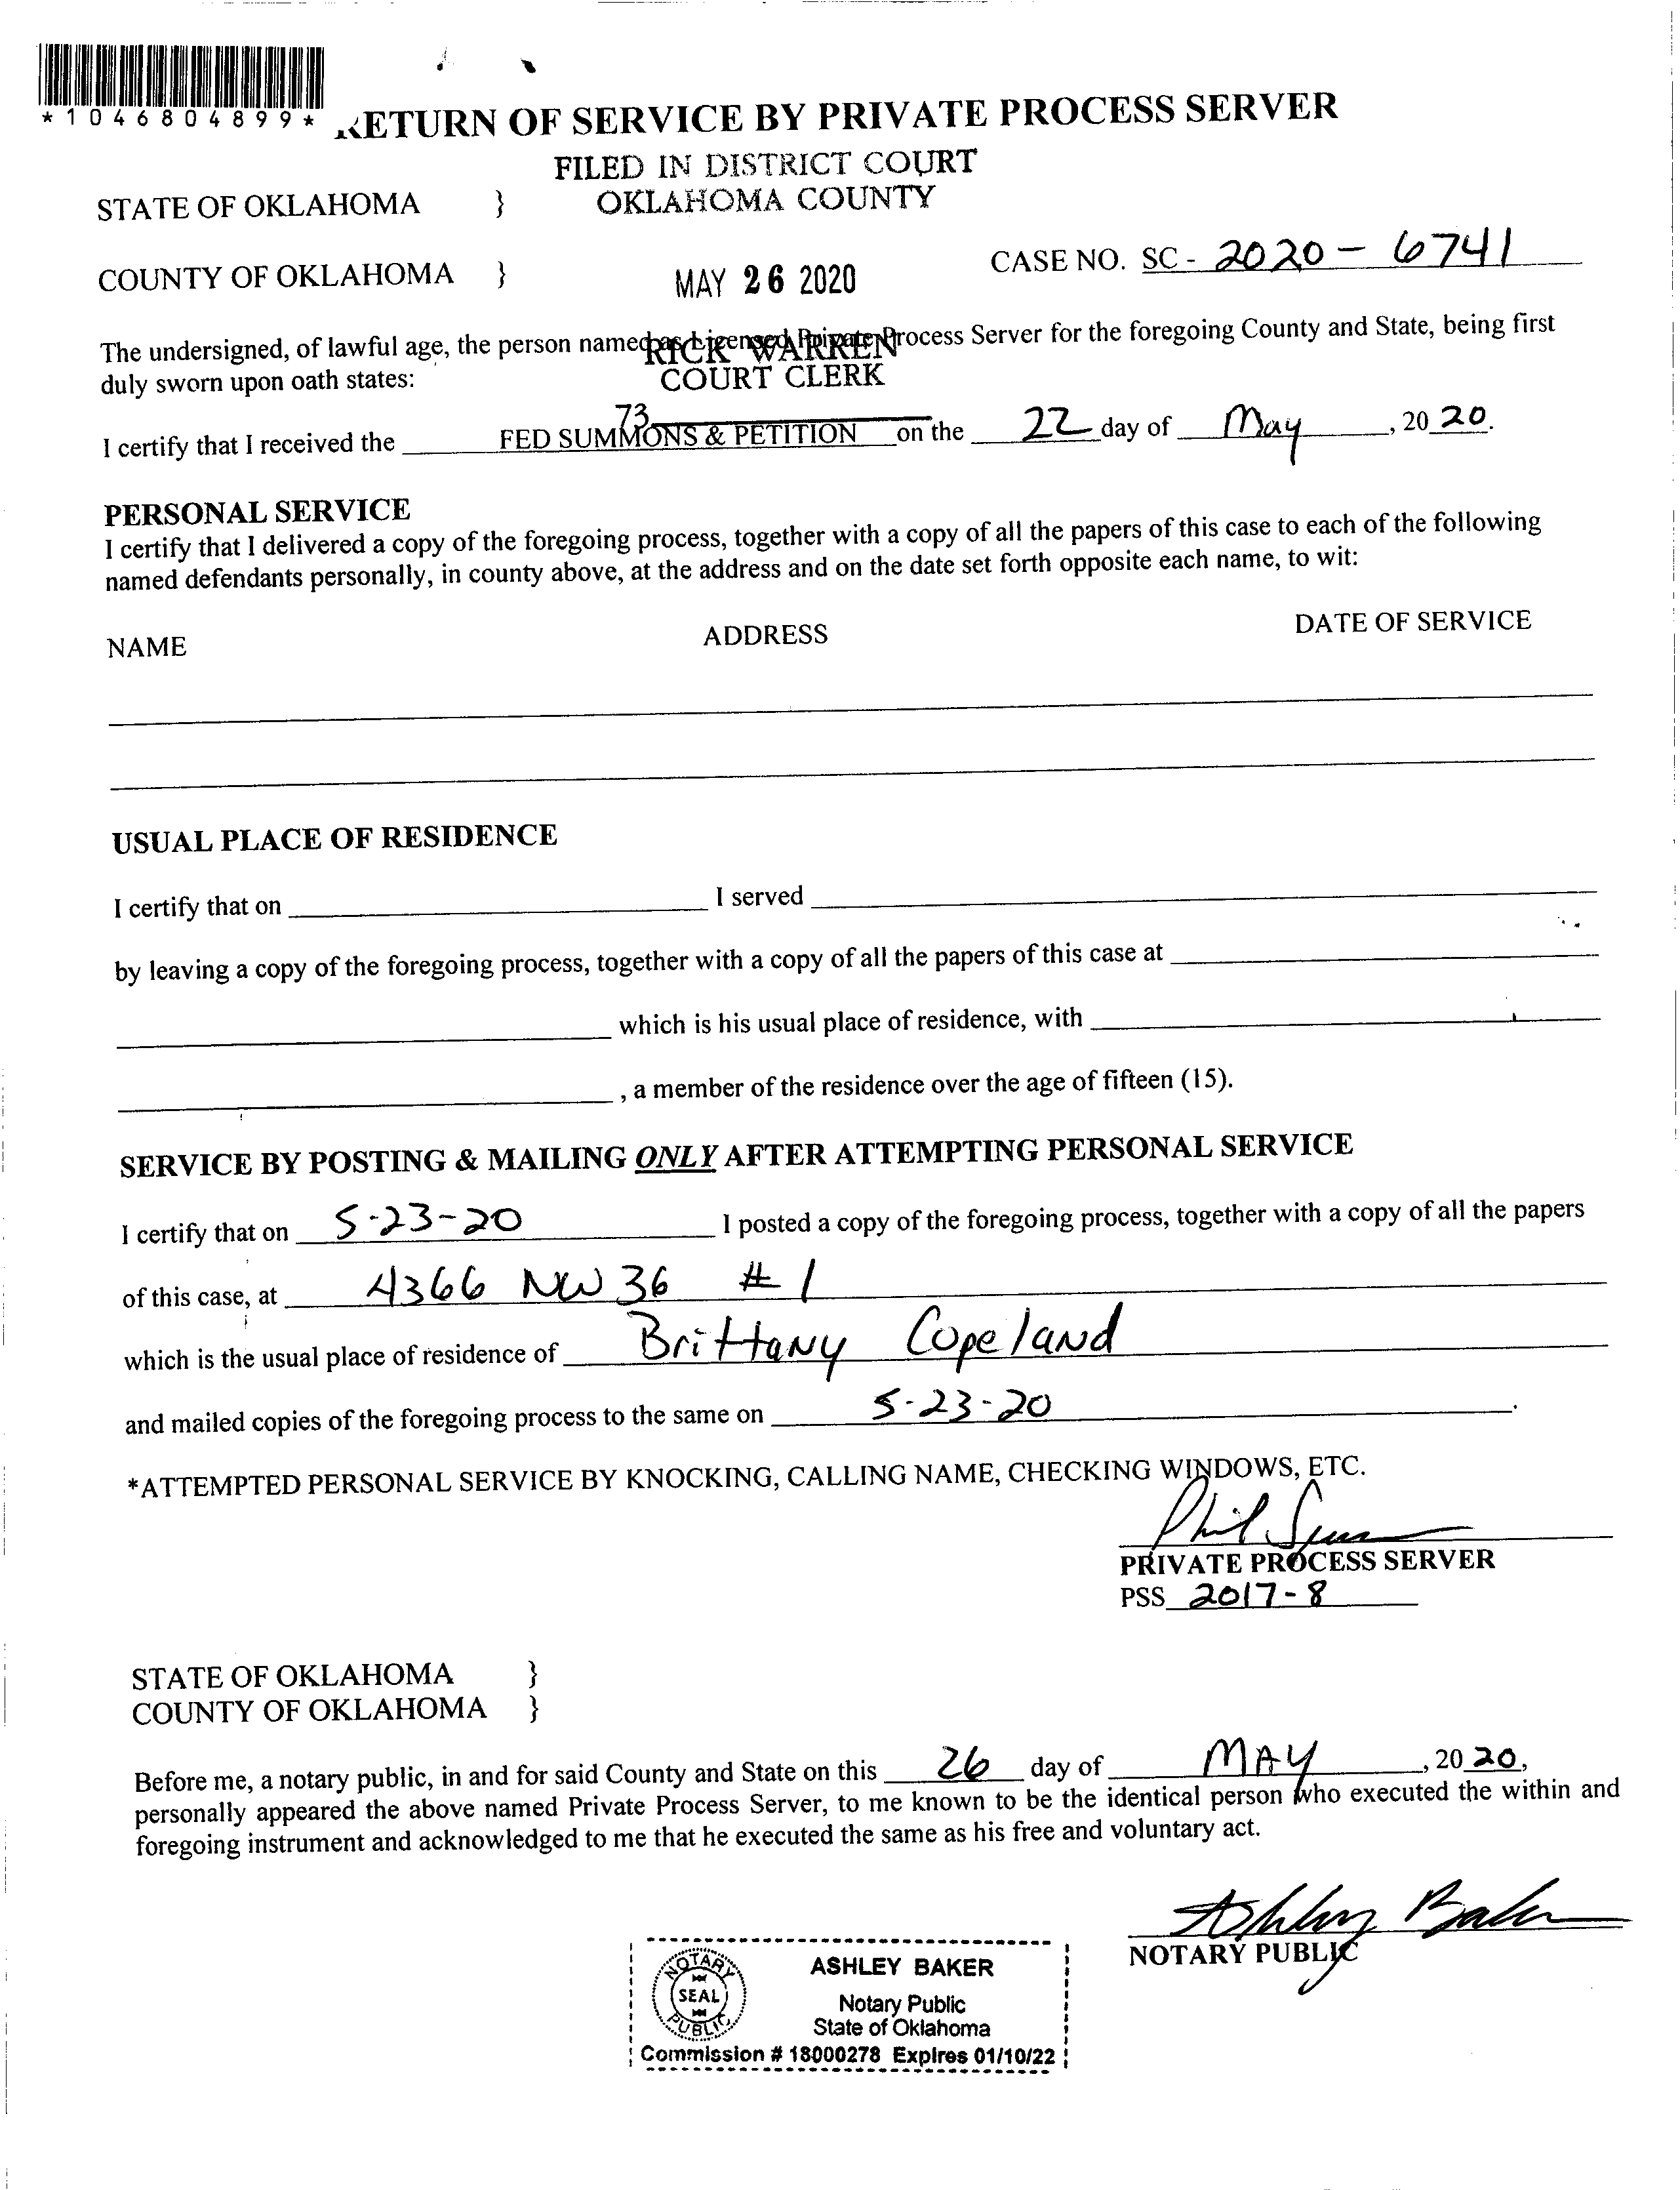 *1046804899*
RETURN OF SERVICE BY PRIVATE PROCESS SERVER
FILED IN DISTRICT COURT
OKLAHOMA COUNTY
STATE OF OKLAHOMA }
CASE NO. SC - 2020 - 6741
COUNTY OF OKLAHOMA }
MAY 26 2020
The undersigned, of lawful age, the person named as Licensed Private Process Server for the foregoing County and State, being first
RICK WARREN
duly sworn upon oath states:
COURT CLERK
73
I certify that I received the FED SUMMONS & PETITION on the 22 day of May, 20 20.
PERSONAL SERVICE
I certify that I delivered a copy of the foregoing process, together with a copy of all the papers of this case to each of the following
named defendants personally, in county above, at the address and on the date set forth opposite each name, to wit:
NAME ADDRESS DATE OF SERVICE
USUAL PLACE OF RESIDENCE
I certify that on I served
by leaving a copy of the foregoing process, together with a copy of all the papers of this case at
which is his usual place of residence, with
, a member of the residence over the age of fifteen (15).
SERVICE BY POSTING & MAILING ONLY AFTER ATTEMPTING PERSONAL SERVICE
I certify that on 5-23-20 I posted a copy of the foregoing process, together with a copy of all the papers
of this case, at 4366 NW 36 #1
which is the usual place of residence of Brittany Copeland
and mailed copies of the foregoing process to the same on 5-23-20.
*ATTEMPTED PERSONAL SERVICE BY KNOCKING, CALLING NAME, CHECKING WINDOWS, ETC.
Phil
PRIVATE PROCESS SERVER
PSS 2017-8
STATE OF OKLAHOMA }
COUNTY OF OKLAHOMA }
Before me, a notary public, in and for said County and State on this 26 day of MAY, 20 20,
personally appeared the above named Private Process Server, to me known to be the identical person who executed the within and
foregoing instrument and acknowledged to me that he executed the same as his free and voluntary act.
Ashley Baker
NOTARY PUBLIC
NOTARY PUBLIC
SEAL
ASHLEY BAKER
Notary Public
State of Oklahoma
Commission # 18000278 Expires 01/10/22